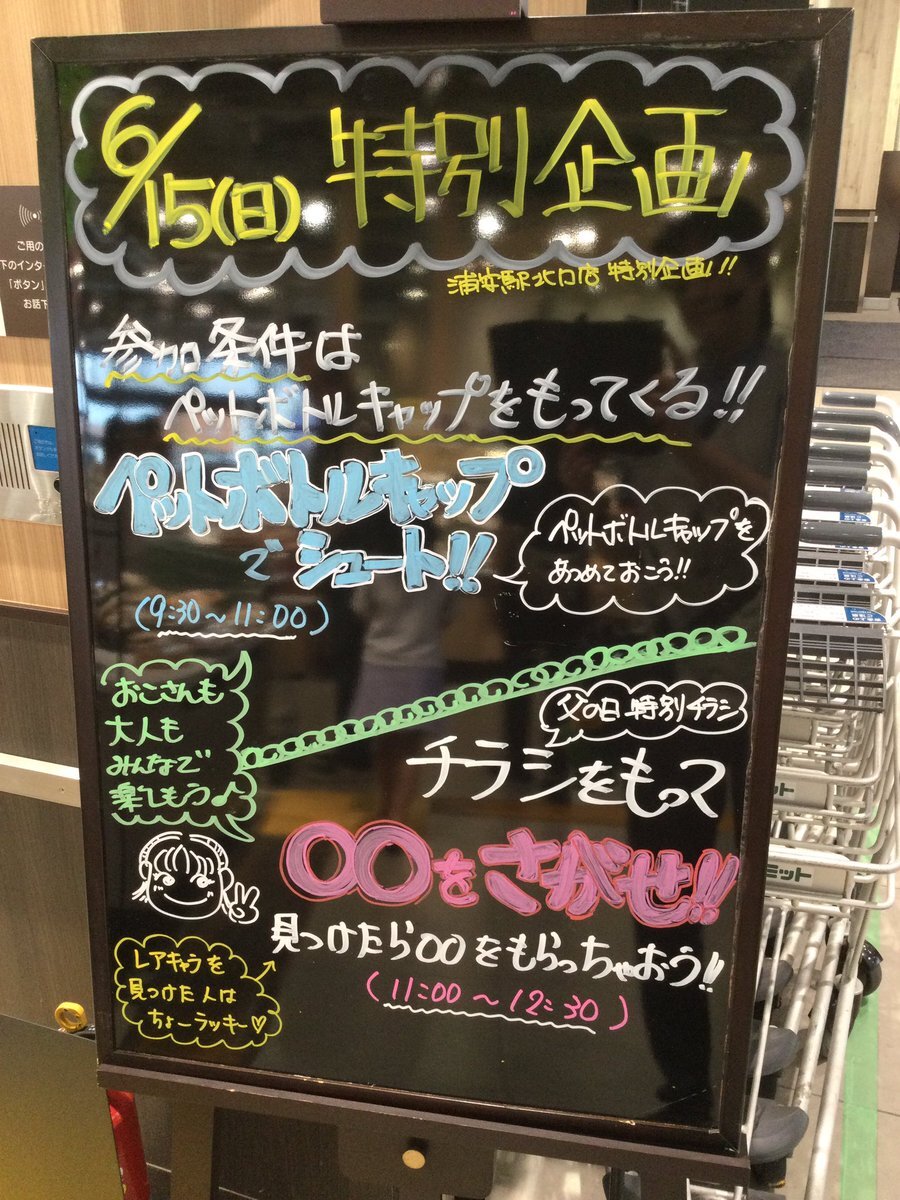 6/15(日) 特別企画
浦安駅北口店 特別企画!!
参加条件は
ペットボトルキャップをもってくる!!
ペットボトルキャップ
で シュート!!
(9:30〜11:00)
ペットボトルキャップを
あつめておこう!!
おこさんも
大人も
みんなで
楽しもう♪
父の日 特別チラシ
チラシをもって
〇〇をさがせ!!
見つけたら〇〇をもらっちゃおう!!
(11:00〜12:30)
レアキャラを
見つけた人は
ちょーラッキー♡
ご用の
下のインター
「ボタン」
お話下
ミット